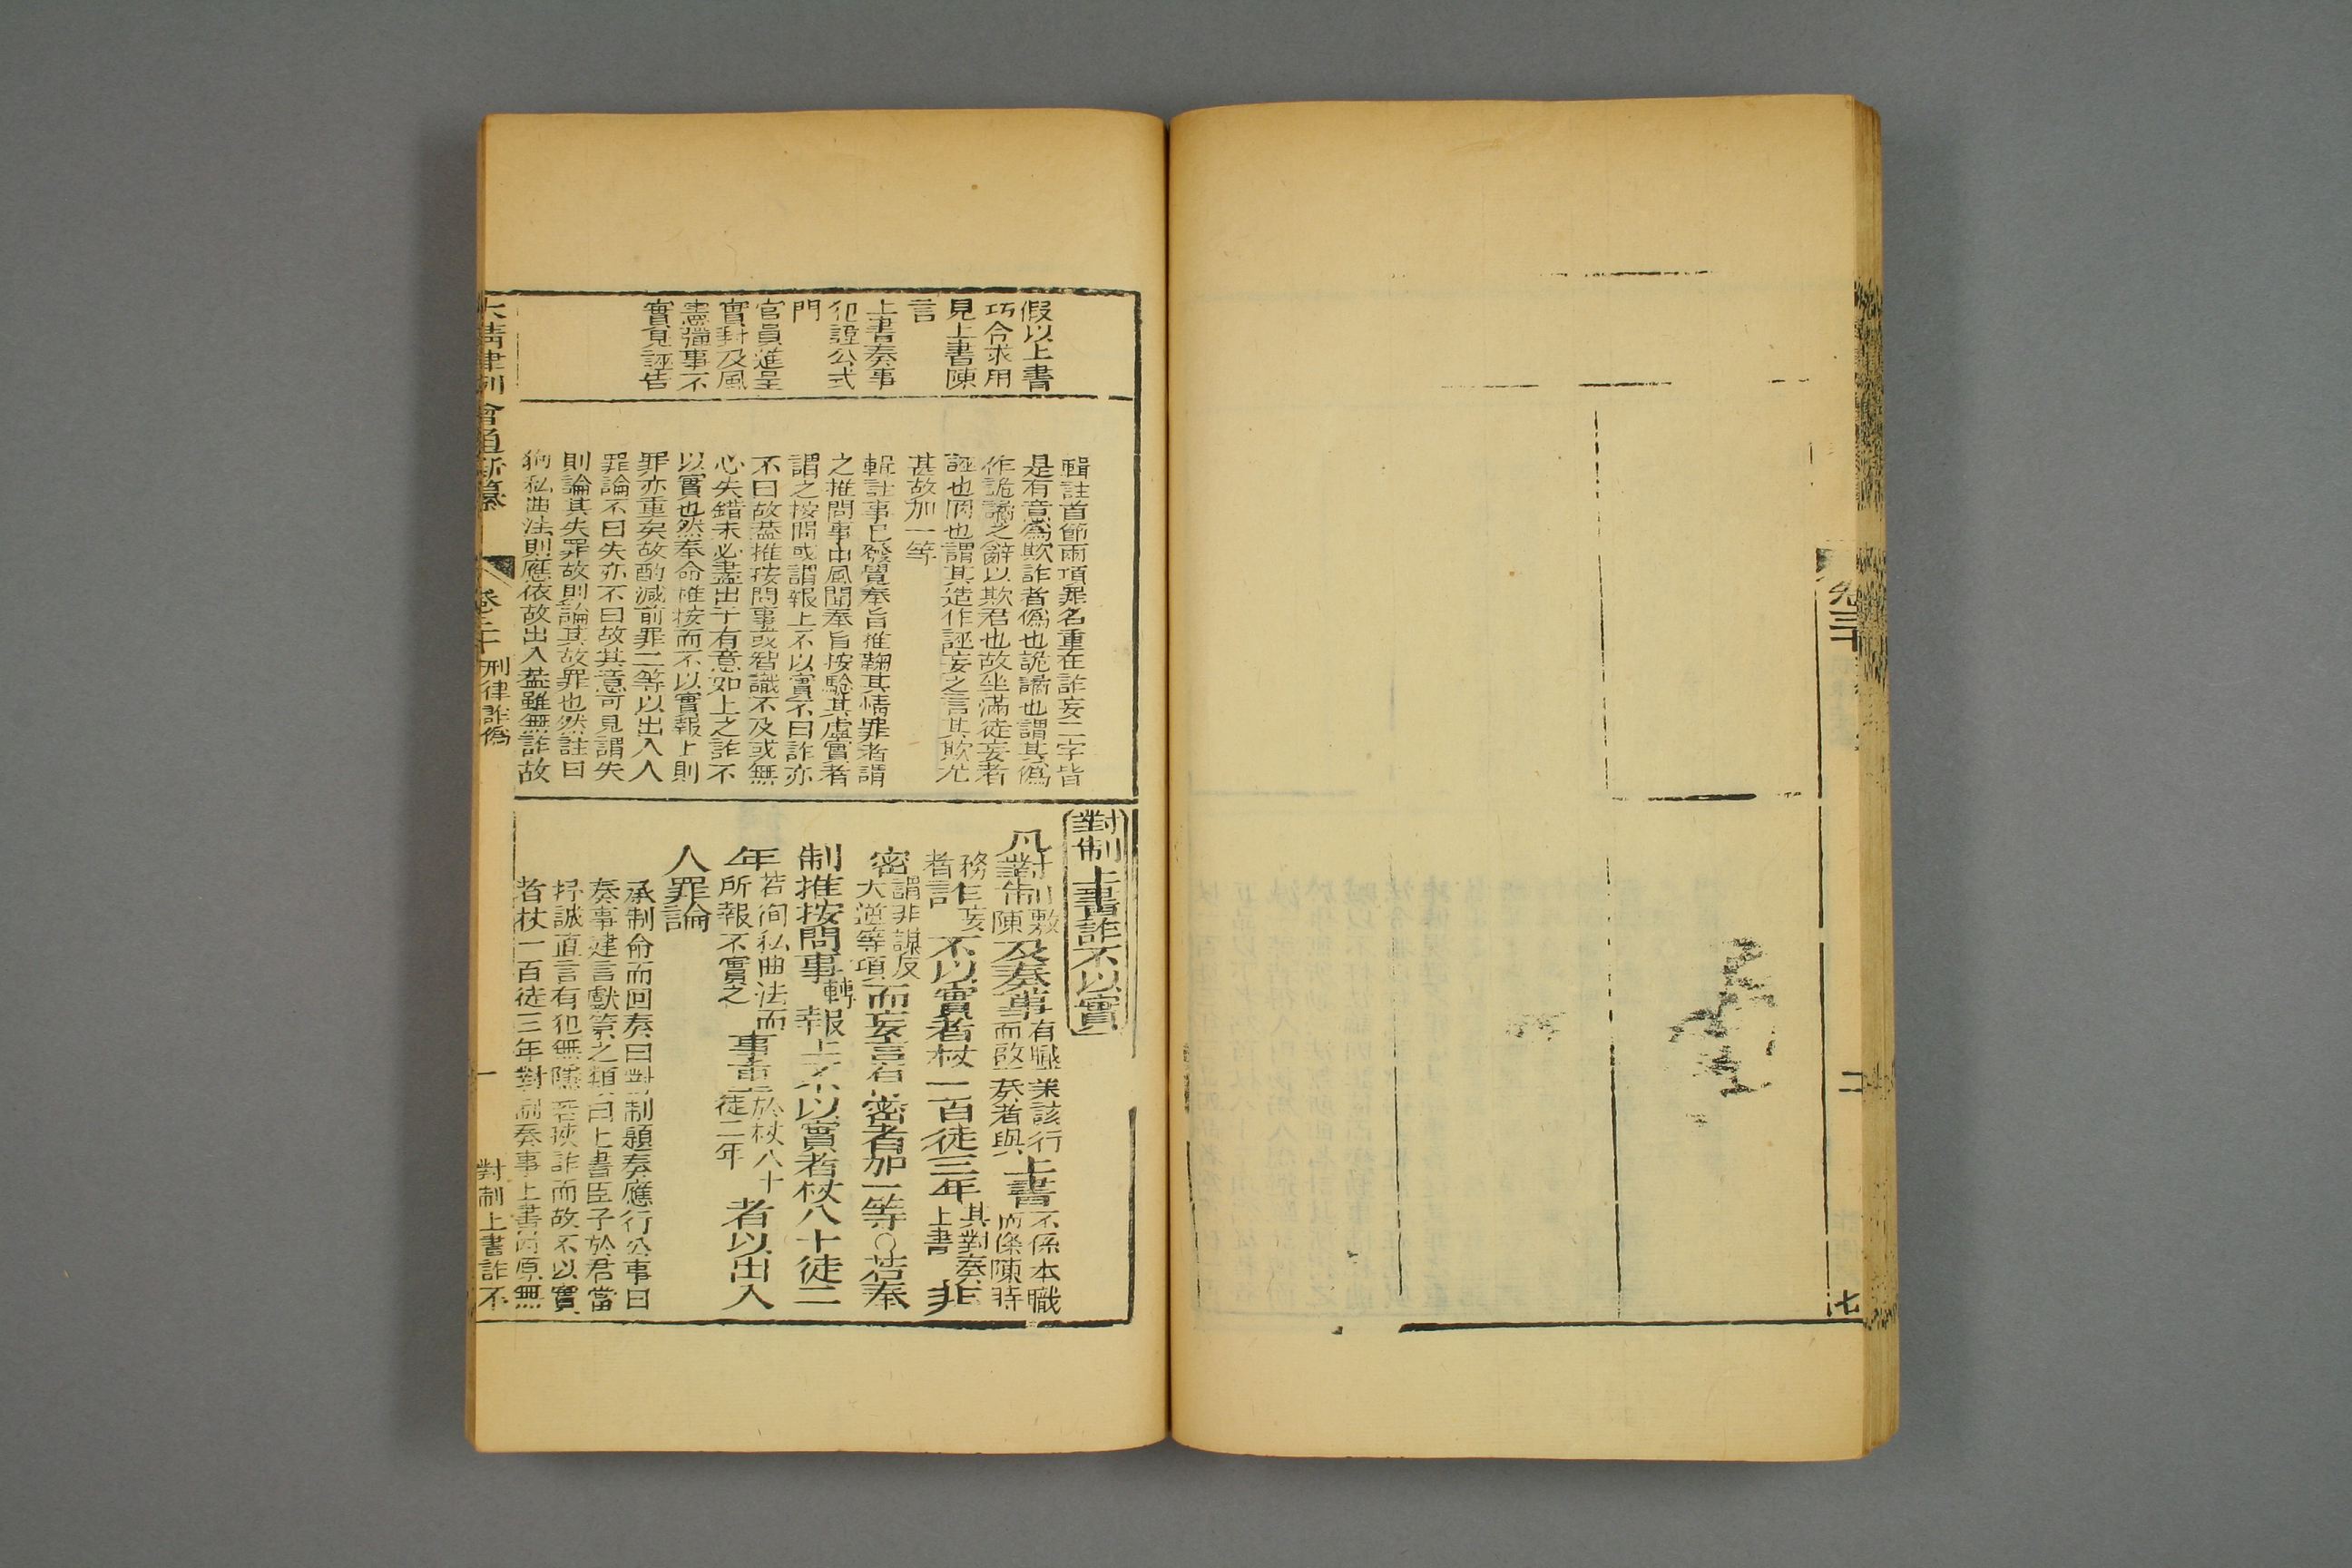 卷三十
二
七
假以上書
巧合求用
見上書陳
言
上書奏事
犯諱公式
門
官員進呈
實封及風
憲彈事不
實見誣告
輯註首節兩項罪名重在詐妄二字皆
是有意為欺詐者僞也詭譎也謂其僞
作詭譎之辭以欺君也故坐滿徒妄者
誣也罔也謂其造作誣妄之言其欺尤
甚故加一等
輯註事已發覺奉旨推鞫其情罪者謂
之推問事由風聞奉旨按驗其虛實者
謂之按問或謂報上不以實不曰詐亦
不曰故葢推按問事或智識不及或無
心失錯未必盡出于有意如上之詐不
以實也然奉命推按而不以實報上則
罪亦重矣故酌減前罪二等以出入人
罪論不曰失亦不曰故其意可見謂失
則論其失罪故則論其故罪也然註曰
狥私曲法則應依故出入葢雖無詐故
對制上書詐不以實
凡對制敷陳及奏事有職業該行而啟奏者與上書不係本職而條陳時
務者詐妄不以實者杖一百徒三年其對奏上書非
密謂非謀反大逆等項而妄言有密者加一等○若奉
制推按問事轉報上不以實者杖八十徒二
年若徇私曲法而所報不實之事重於杖八十徒二年者以出入
人罪論
承制命而回奏曰對制題奏應行公事曰
奏事建言獻策之類曰上書臣子於君當
抒誠直言有犯無隱若挾詐而故不以實
者杖一百徒三年對制奏事上書內原無
大清律例會通新纂 卷三十 刑律詐僞 一 對制上書詐不